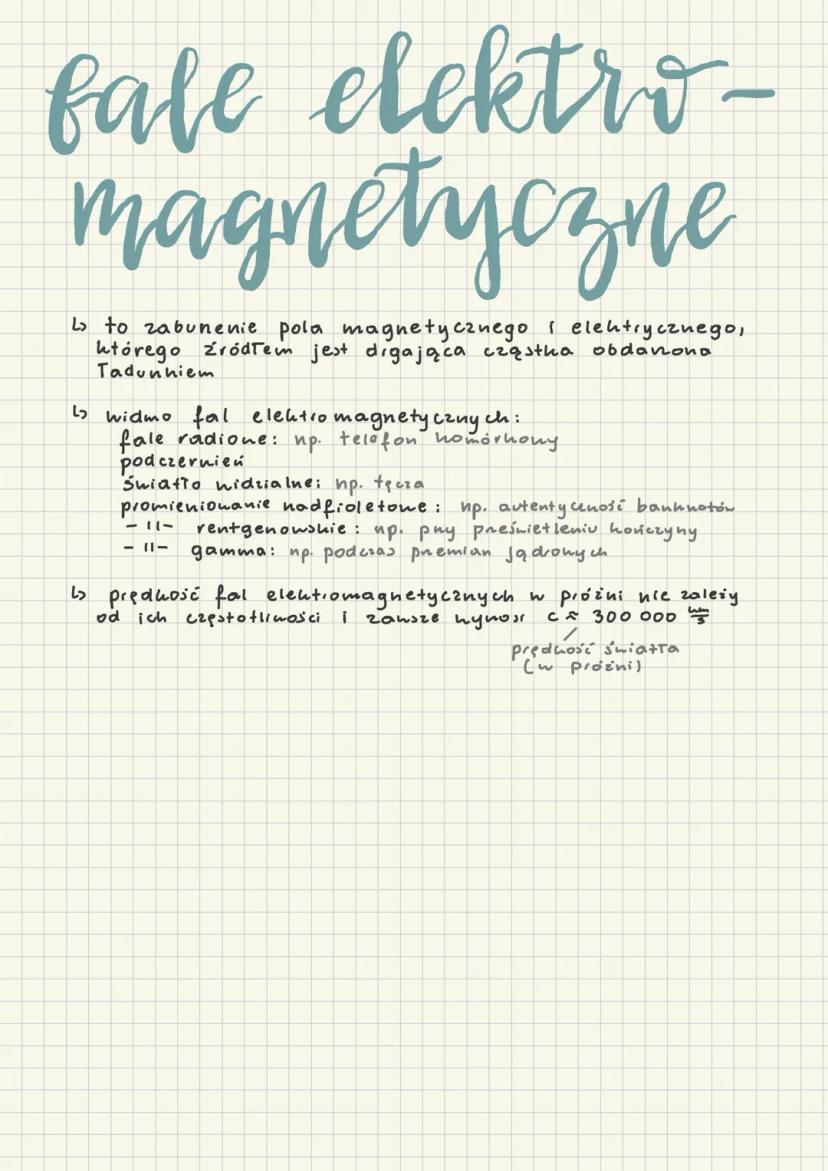 fale elektro-
magnetyczne
↳ to zaburzenie pola magnetycznego i elektrycznego,
którego źródłem jest drgająca cząstka obdarzona
ładunkiem
↳ widmo fal elektromagnetycznych:
fale radiowe: np. telefon komórkowy
podczerwień
światło widzialne: np. tęcza
promieniowanie nadfioletowe: np. autentyczność banknotów
-||- rentgenowskie: np. przy prześwietleniu kończyny
-||- gamma: np. podczas przemian jądrowych
↳ prędkość fal elektromagnetycznych w próżni nie zależy
od ich częstotliwości i zawsze wynosi c ≈ 300 000 km/s
prędkość światła
(w próżni)